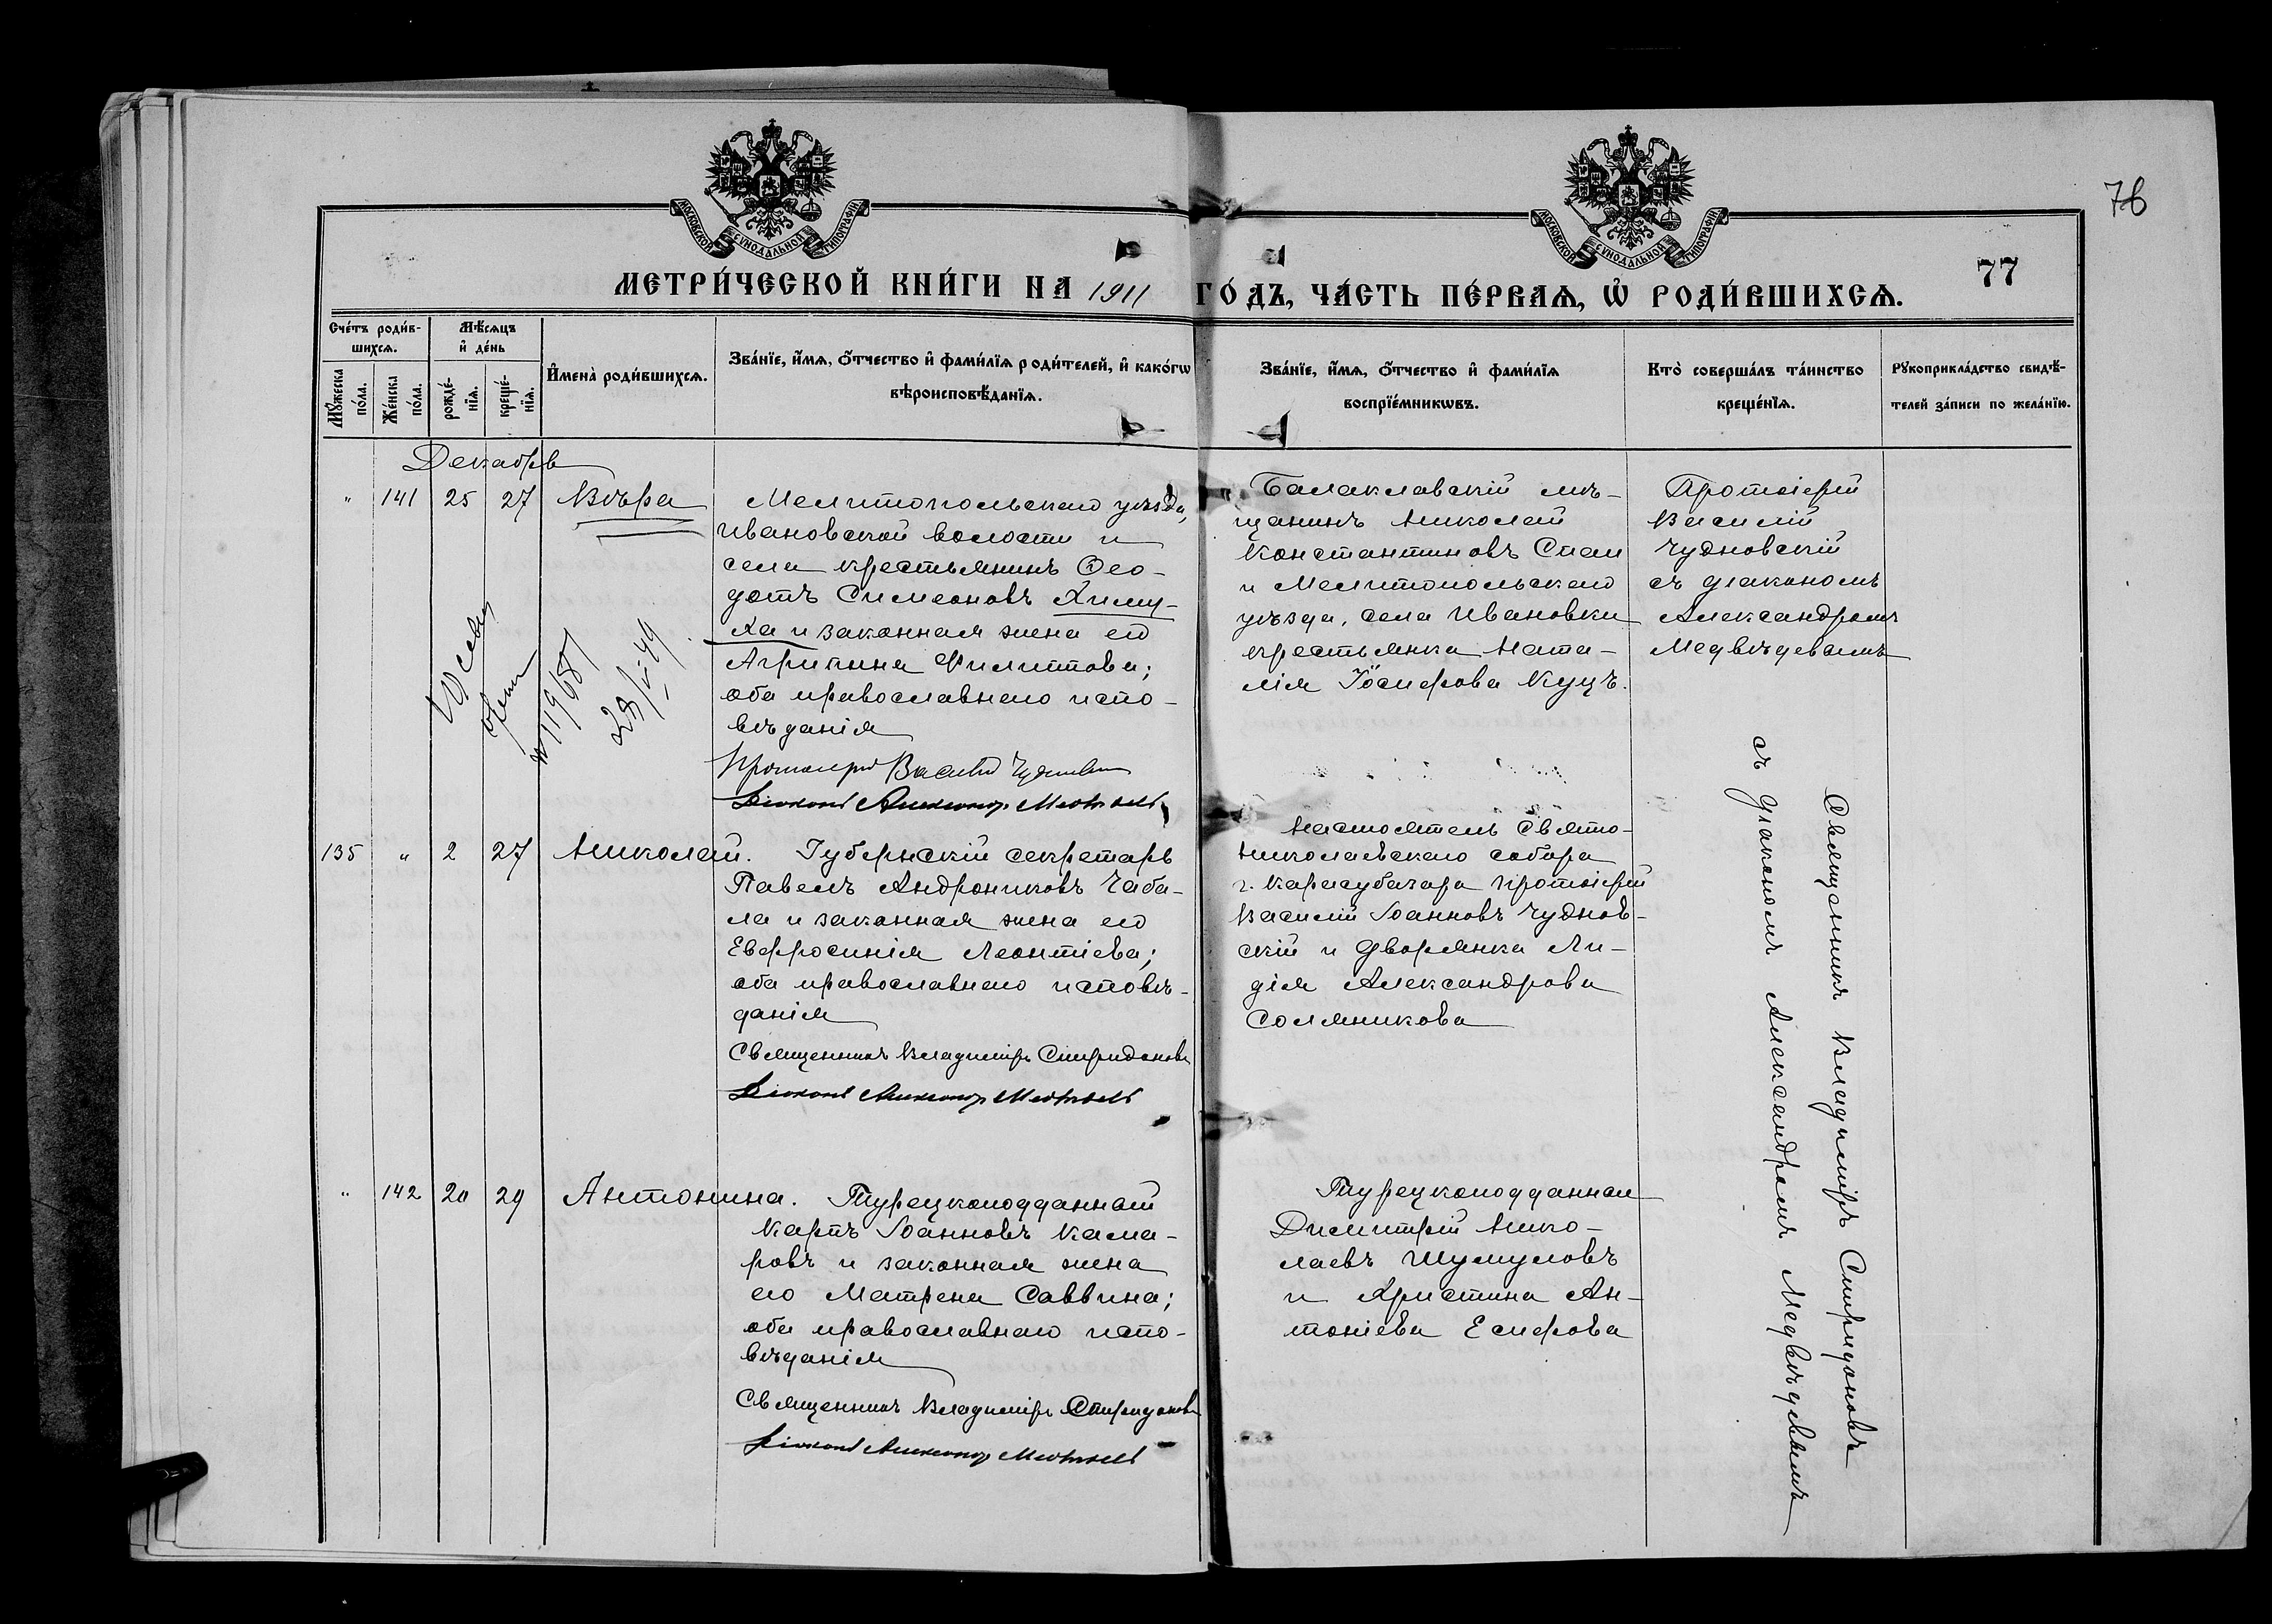 МОСКОВСКОЙ СѴНОДАЛЬНОЙ ТИПОГРАФІИ
МОСКОВСКОЙ СѴНОДАЛЬНОЙ ТИПОГРАФІИ
76
77
МЕТРИ́ЧЕСКОЙ КНИ́ГИ НА 1911 ГО́ДЪ, ЧА́СТЬ ПЕ́РВАѦ, Ѡ҆ РОДИ́ВШИХСѦ.
Сче́тъ роди́в-
шихсѧ.
Мѣ́сѧцъ
и҆ де́нь
Мꙋ́жеска
по́ла.
Же́нска
по́ла.
рожде́-
нїѧ.
креще́-
нїѧ.
И҆мена̀ роди́вшихсѧ.
Зва́нїе, и҆́мѧ, ѻ҆́тчество и҆ фами́лїѧ роди́телей, и҆ како́гѡ
вѣроисповѣ́данїѧ.
Зва́нїе, и҆́мѧ, ѻ҆́тчество и҆ фами́лїѧ
воспрїе́мникѡвъ.
Кто̀ соверша́лъ та́инство
креще́нїѧ.
Рꙋкоприкла́дство свидѣ́-
телей за́писи по жела́нїю.
Декабрь
" 141 25 27 Вѣра
Мелитопольскаго уѣзда,
Ивановской волости и
села крестьянинъ Ѳео-
дотъ Симеоновъ Химу-
ха и законная жена его
Агрипина Филиппова;
оба православнаго испо-
вѣданія
Протоіерей Василій Чудновскій
Діаконъ Александр Медвѣдевъ
Балаклавскій мѣ-
щанинъ Николай
Константиновъ Спаи
и Мелитопольскаго
уѣзда, села Ивановки
крестьянка Ната-
лія Іосифова Куцъ.
Протоіерей
Василій
Чудновскій
съ діакономъ
Александромъ
Медвѣдевымъ
119687
28/V-49
135 " 2 27 Николай.
Губернскій секретарь
Павелъ Андрониковъ Чаба-
ла и законная жена его
Евфросинія Леонтіева;
оба православнаго исповѣ-
данія
Священникъ Владиміръ Спиридоновъ
Діаконъ Александр Медвѣдевъ
Настоятель Свято-
Николаевскаго собора
г. Карасубазара протоіерей
Василій Іоанновъ Чуднов-
скій и дворянка Ли-
дія Александрова
Соляникова
Священникъ Владиміръ Спиридоновъ
съ діакономъ Александромъ Медвѣдевымъ
" 142 20 29 Антонина.
Турецкоподданный
Карпъ Іоанновъ Кама-
ровъ и законная жена
его Матрена Саввина;
оба православнаго испо-
вѣданія
Священникъ Владиміръ Спиридоновъ
Діаконъ Александр Медвѣдевъ
Турецкоподданные
Димитрій Нико-
лаевъ Шумуловъ
и Христина Ан-
тоніева Есифова